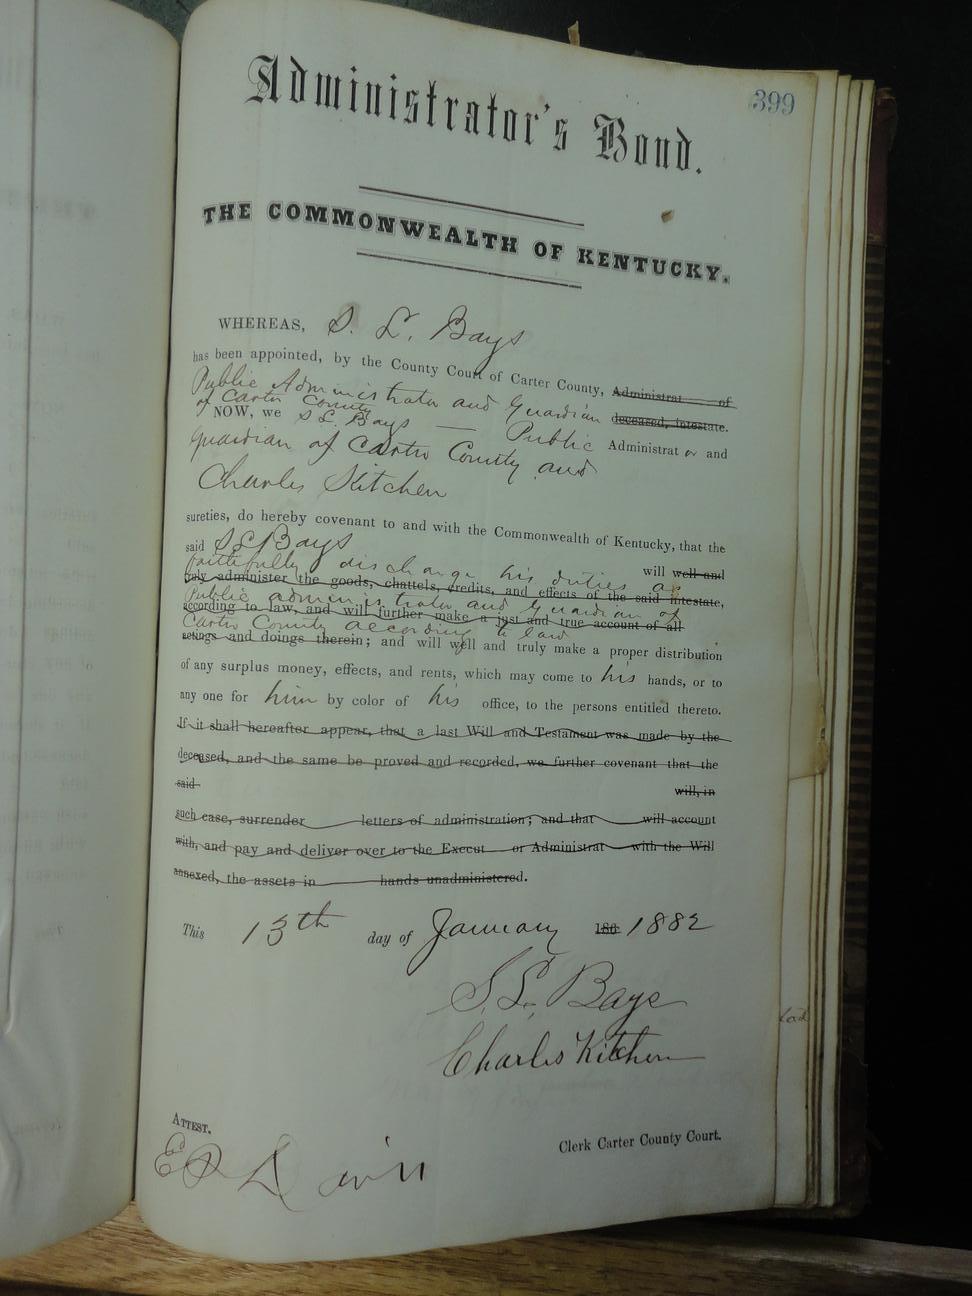 399
Administrator's Bond.
THE COMMONWEALTH OF KENTUCKY.
WHEREAS, S. L. Bays
has been appointed, by the County Court of Carter County, Administrat of
Public Administrator and Guardian
of Carter County deceased, intestate.
NOW, we S L Bays — Public Administrator and
Guardian of Carter County and
Charles Kitchen
sureties, do hereby covenant to and with the Commonwealth of Kentucky, that the
said S L Bays will well and
faithfully discharge his duties as
truly administer the goods, chattels, credits, and effects of the said intestate,
Public administrator and Guardian of
according to law, and will further make a just and true account of all
Carter County according to law
actings and doings therein; and will well and truly make a proper distribution
of any surplus money, effects, and rents, which may come to his hands, or to
any one for him by color of his office, to the persons entitled thereto.
If it shall hereafter appear, that a last Will and Testament was made by the
deceased, and the same be proved and recorded, we further covenant that the
said will, in
such case, surrender letters of administration; and that will account
with, and pay and deliver over to the Execut or Administrat with the Will
annexed, the assets in hands unadministered.
This 13th day of January 186 1882
S. L. Bays
Charles Kitchen
ATTEST.
Clerk Carter County Court.